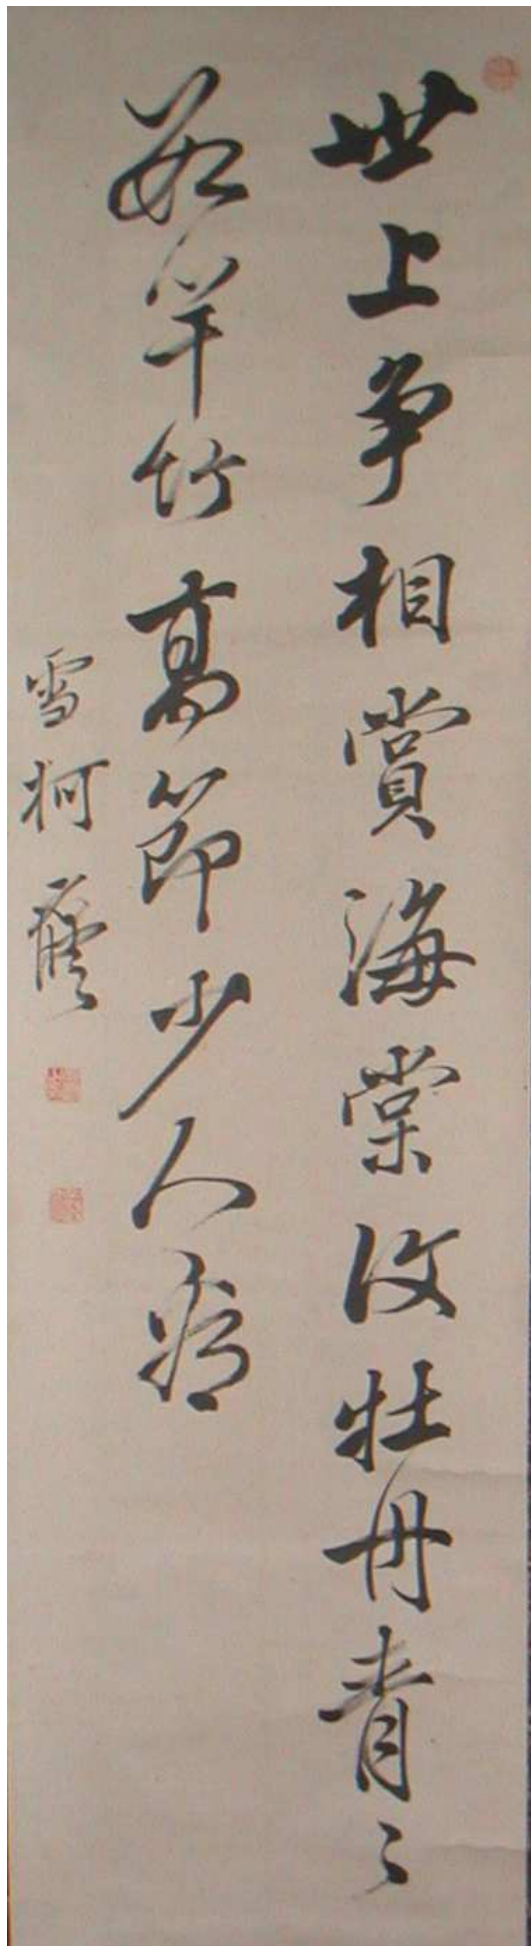 世上争相賞海棠牡丹青〻
数竿竹高節少人看
雪柯